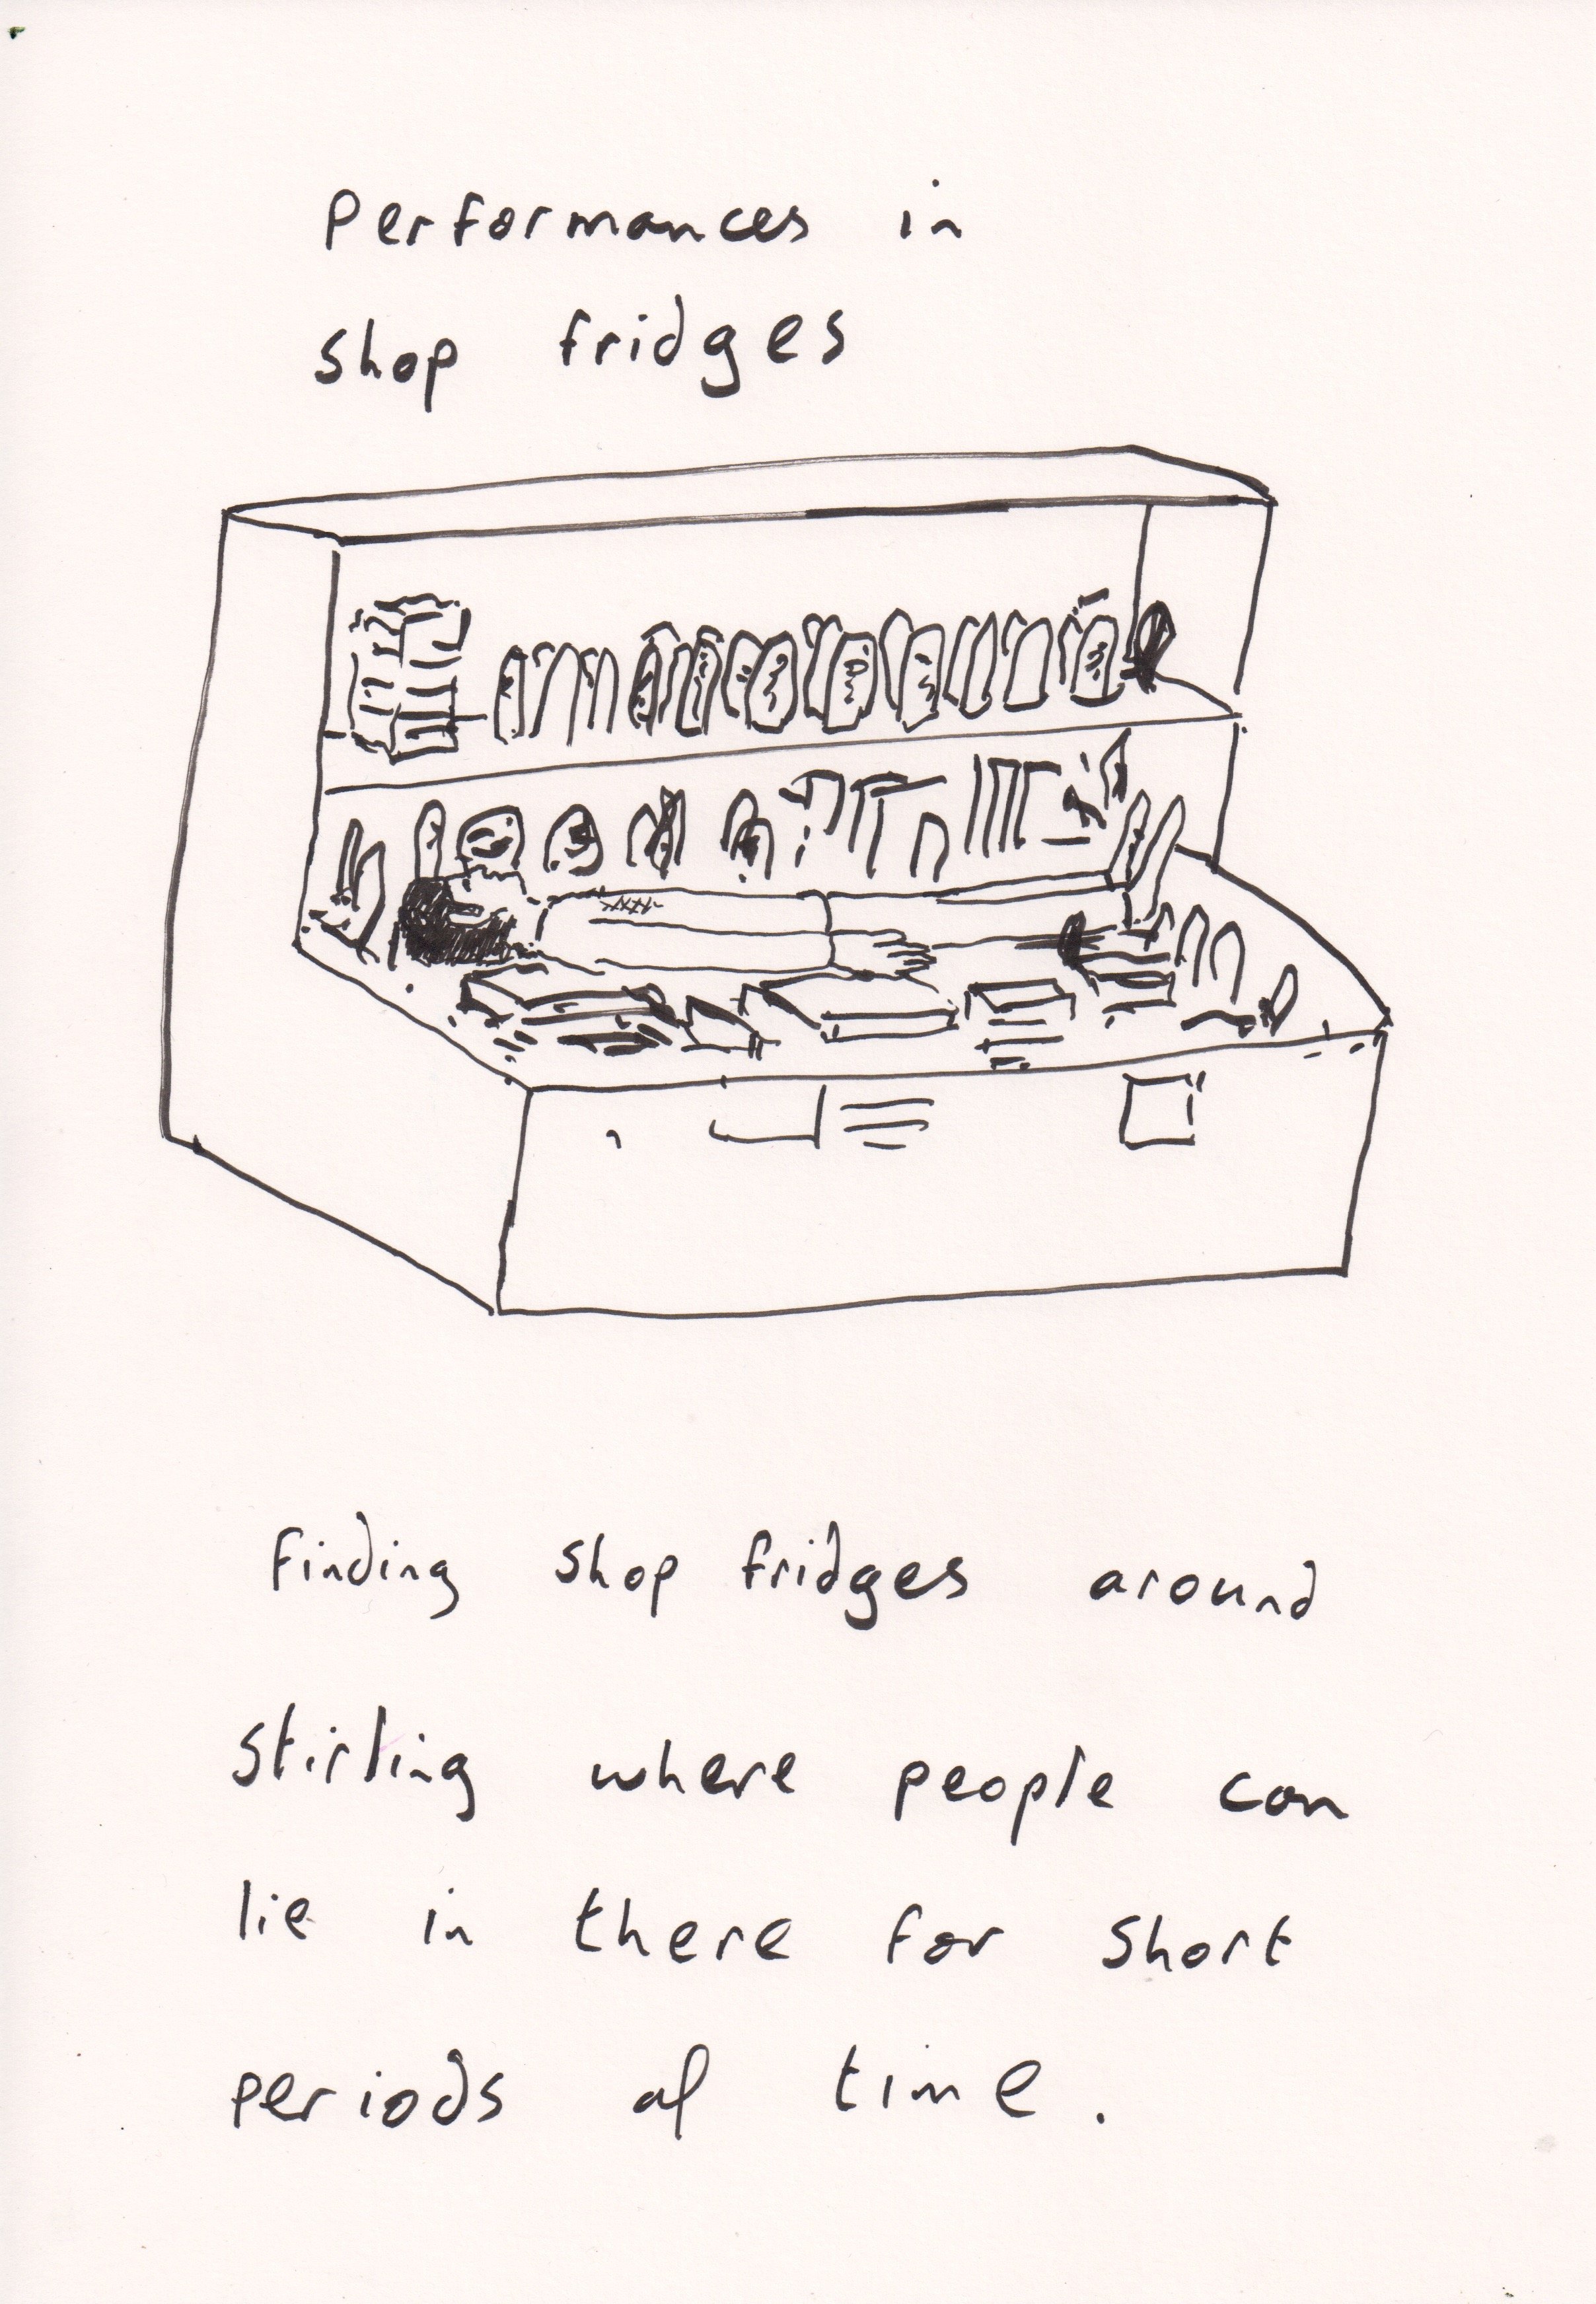 Performances in
shop fridges
Finding shop fridges around
Stirling where people can
lie in there for short
periods of time.